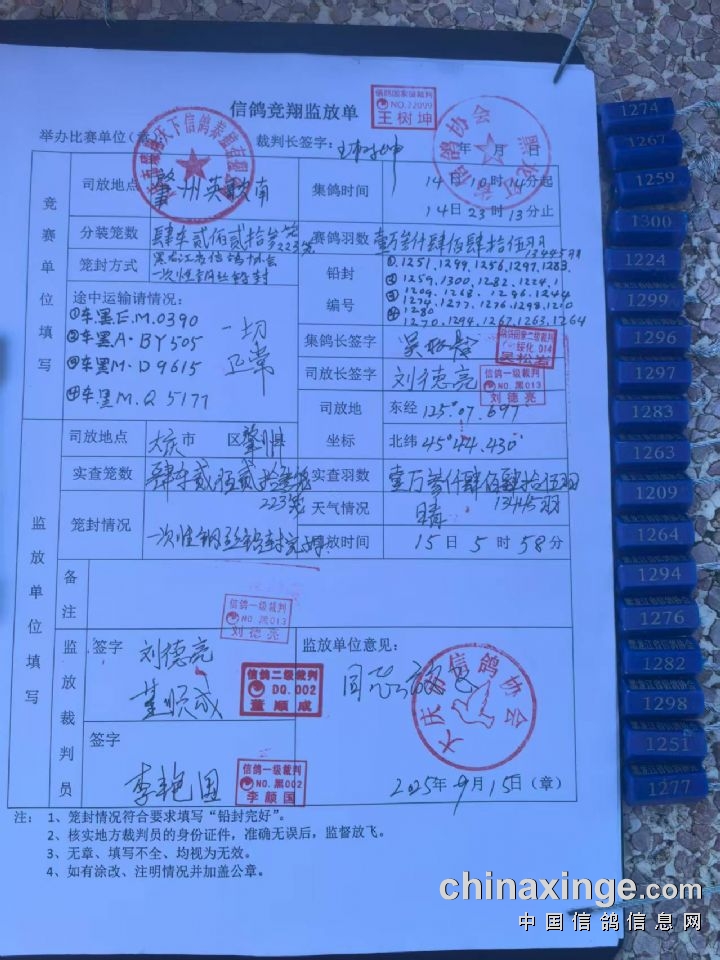 信鸽竞翔监放单
信鸽国家级裁判
NO.22099
王树坤
举办比赛单位(章)
裁判长签字:
年 月 日
竞赛单位填写
司放地点
肇州
集鸽时间
14日10时14分起
14日23时13分止
分装笼数
223笼
赛鸽羽数
13445羽
笼封方式
黑龙江省信鸽协会
一次性钢丝铅封
铅封
编号
①.1251.1299.1256.1297.1283.
1270.1294.1267.1263.1264
途中运输请情况:
①车黑E.M.0390
②车黑A.BY505
③车黑M.D9615
④车黑M.Q5171
一切
正常
集鸽长签字
吴松岩
司放长签字
刘德亮
信鸽一级裁判
NO.黑013
刘德亮
司放地
坐标
东经 125°07.697′
北纬 45°44.430′
监放单位填写
司放地点
大庆市 区肇州县
实查笼数
223笼
实查羽数
13445羽
笼封情况
一次性钢丝铅封完好
天气情况
晴
司放时间
15日5时58分
备注
信鸽一级裁判
NO.黑013
刘德亮
监放裁判员
签字
刘德亮
董顺成
信鸽二级裁判
DQ.002
董顺成
签字
李艳国
信鸽一级裁判
NO.黑002
监放单位意见:
同意放飞
大庆市信鸽协会
2025年9月15日(章)
注: 1、笼封情况符合要求填写“铅封完好”。
2、核实地方裁判员的身份证件,准确无误后,监督放飞。
3、无章、填写不全、均视为无效。
4、如有涂改、注明情况并加盖公章。
1274
1267
1259
1300
1224
1299
1296
1297
1283
1263
1209
1264
1294
1276
1282
1298
1251
1277
chinaxinge.com
中国信鸽信息网